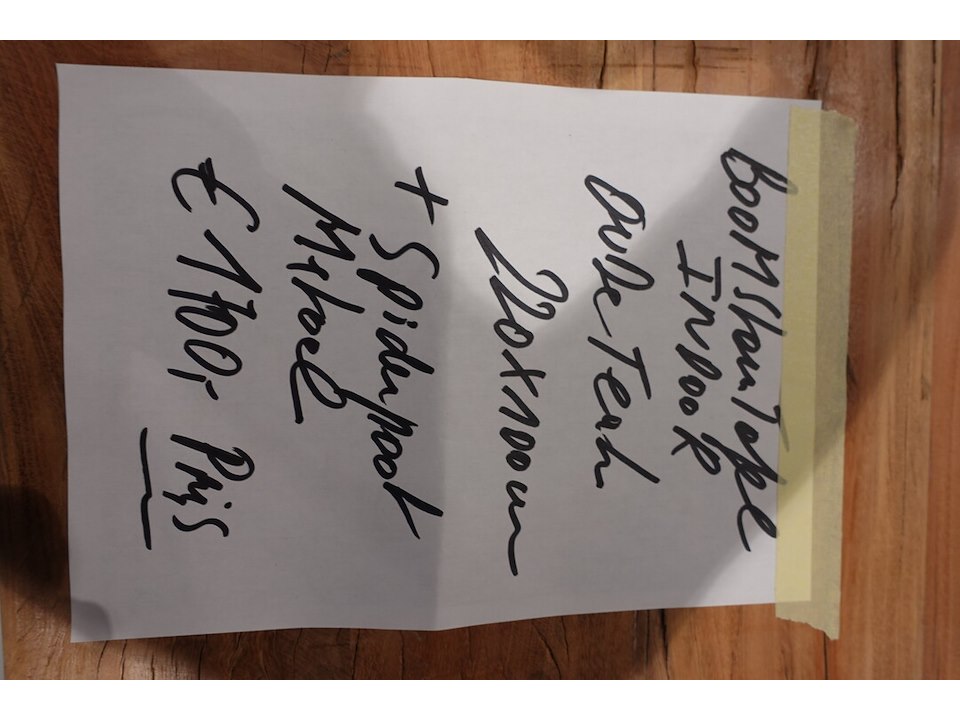 BooMStamTafel
INDOOR
OuDe Teak
220X100cm
+ Spiderpoot
Metaal
€ 1700,- Prijs